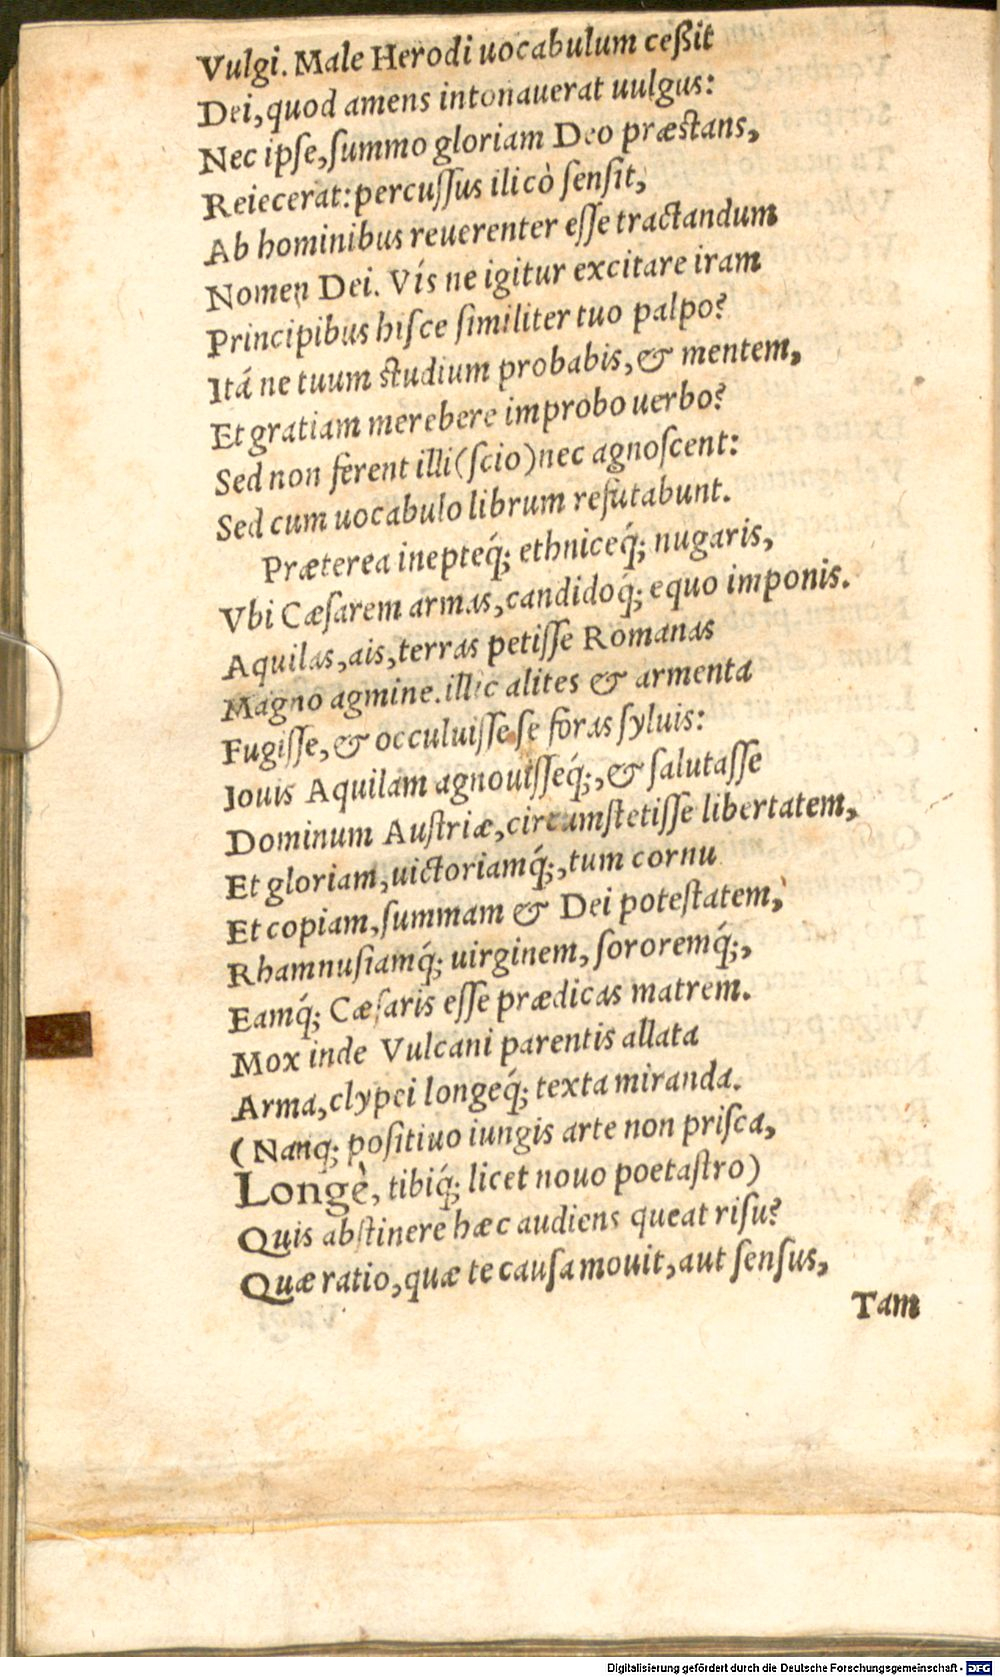 Vulgi. Male Herodi uocabulum ceßit
Dei, quod amens intonauerat uulgus:
Nec ipse, summo gloriam Deo præstans,
Reiecerat: percussus ilicò sensit,
Ab hominibus reuerenter esse tractandum
Nomen Dei. Vís ne igitur excitare iram
Principibus hisce similiter tuo palpo?
Itá ne tuum studium probabis, & mentem,
Et gratiam merebere improbo uerbo?
Sed non ferent illi (scio) nec agnoscent:
Sed cum uocabulo librum refutabunt.
Præterea inepteq́; ethniceq́; nugaris,
Vbi Cæsarem armas, candidoq́; equo imponis.
Aquilas, ais, terras petisse Romanas
Magno agmine. illic alites & armenta
Fugisse, & occuluisse se foras syluis:
Iouis Aquilam agnouisseq́;, & salutasse
Dominum Austriæ, circumstetisse libertatem,
Et gloriam, uictoriamq́;, tum cornu
Et copiam, summam & Dei potestatem,
Rhamnusiamq́; uirginem, sororemq́;,
Eamq́; Cæsaris esse prædicas matrem.
Mox inde Vulcani parentis allata
Arma, clypei longeq́; texta miranda.
(Nanq; positiuo iungis arte non prisca,
Longè, tibiq́; licet nouo poetastro)
Quis abstinere hæc audiens queat risu?
Quæ ratio, quæ te causa mouit, aut sensus,
Tam
Digitalisierung gefördert durch die Deutsche Forschungsgemeinschaft - DFG